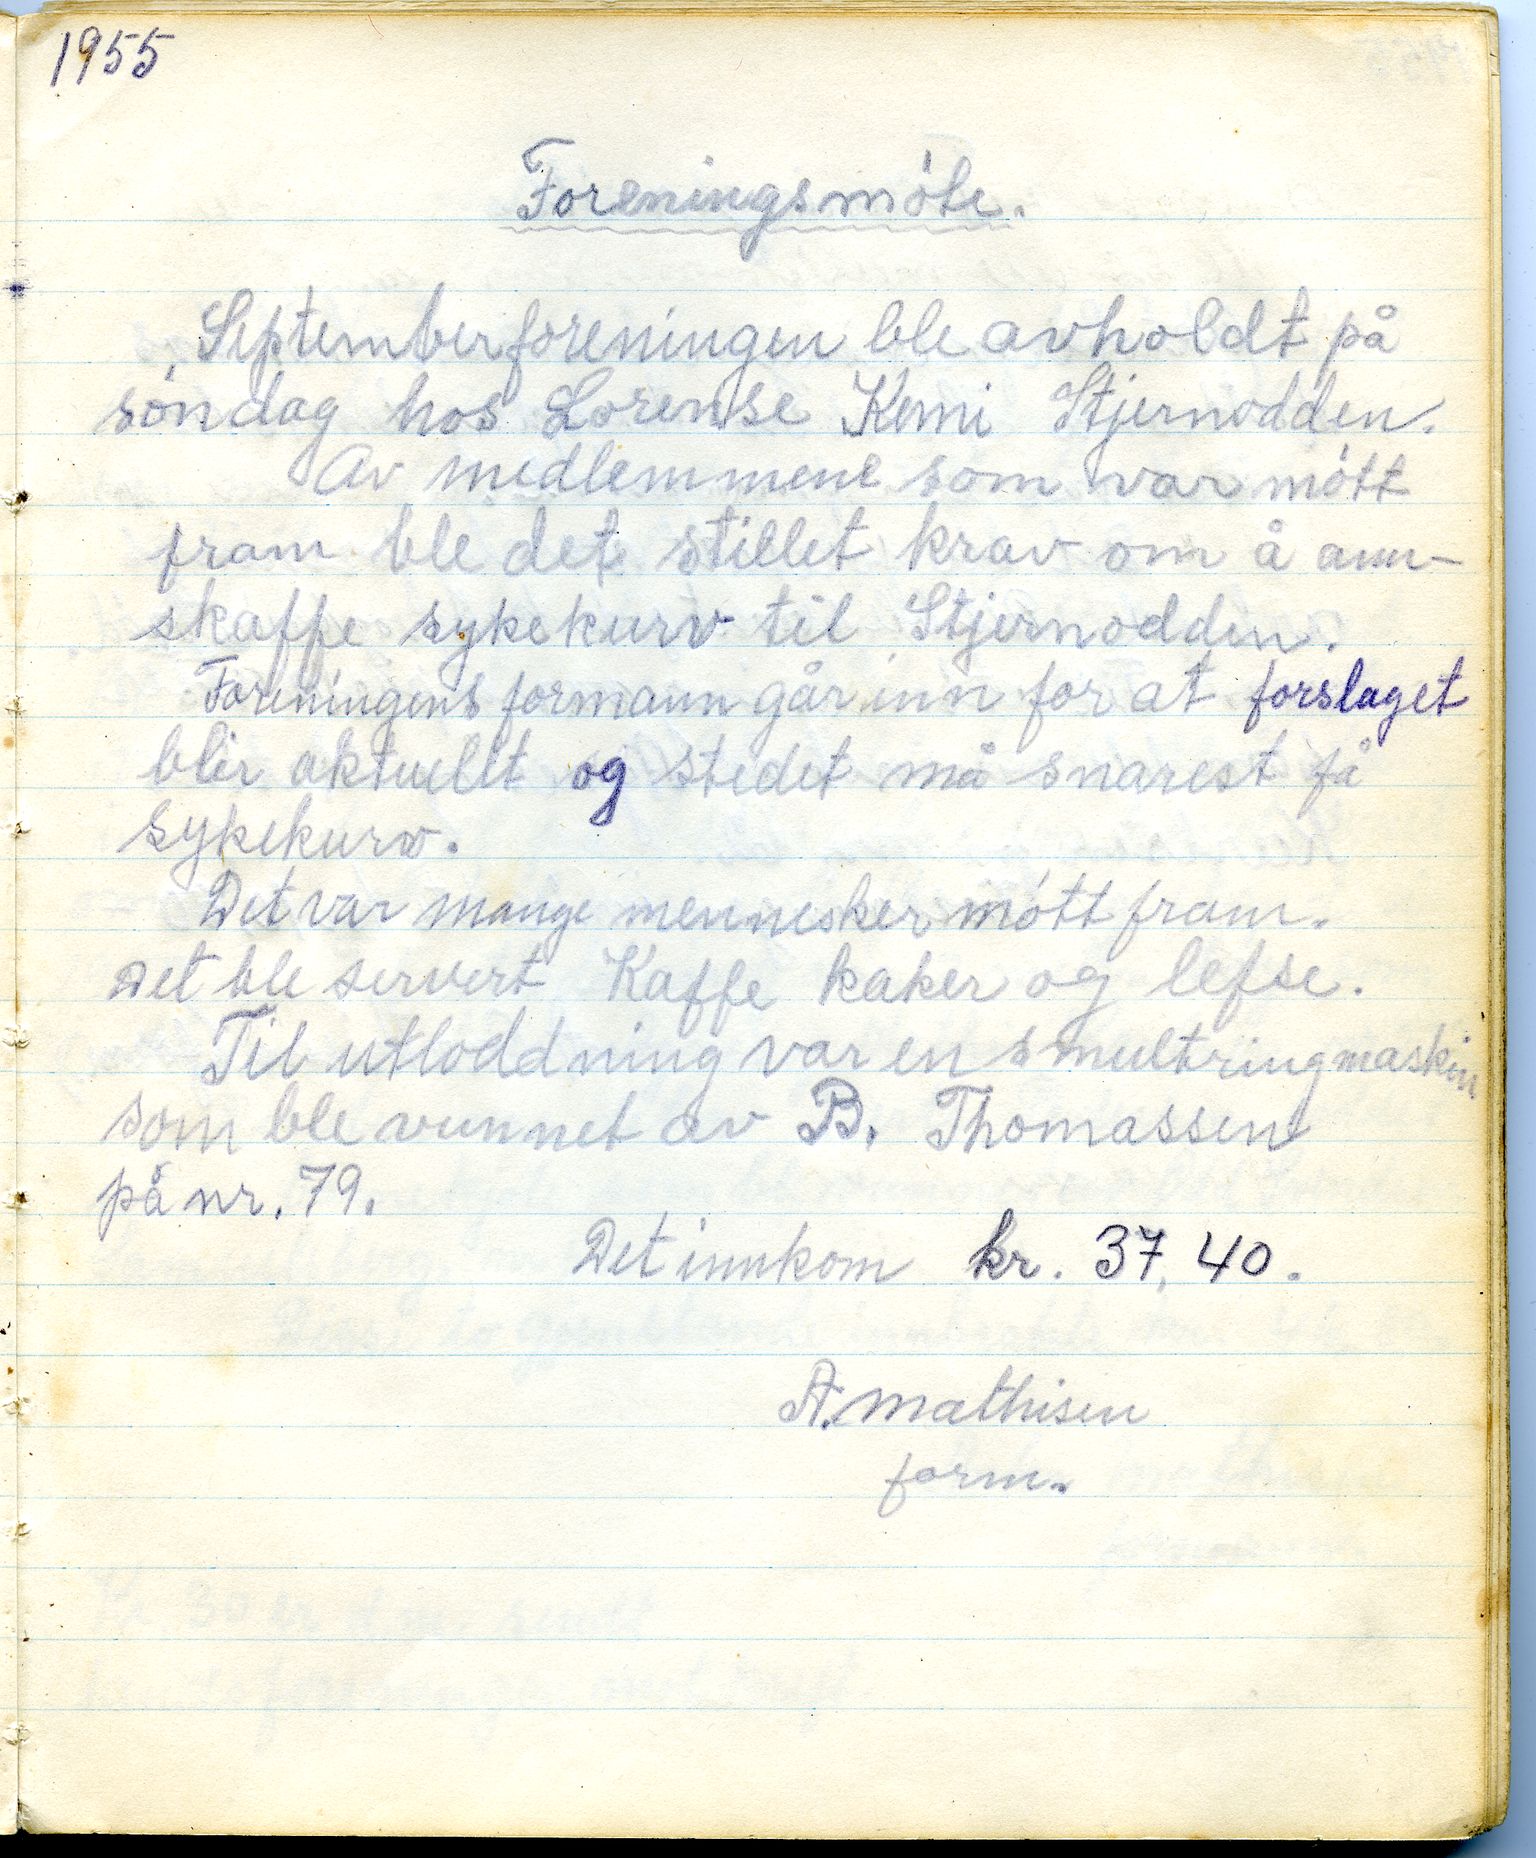 1955
Foreningsmöte.
Septemberforeningen ble avholdt på
söndag hos Lorense Kemi Stjernodden.
Av medlemmene som var mött
fram ble det stillet krav om å ann-
skaffe sykekurv til Stjernodden.
Foreningens formann går inn for at forslaget
blir aktuellt og stedet må snarest få
sykekurv.
Det var mange mennesker mött fram.
Det ble servert Kaffe kaker og lefse.
Til utloddning var en smultringmaskin
som ble vunnet av B. Thomassen
på nr. 79.
Det innkom kr. 37,40.
A. Mathisen
form.